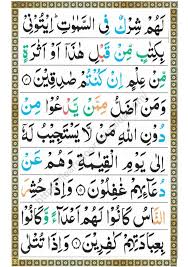 لَهُمْ شِرْكٌ فِى السَّمٰوٰتِ اِيْتُوْنِىْ
بِكِتٰبٍ مِّنْ قَبْلِ هٰذَاۤ اَوْ اَثٰرَةٍ
مِّنْ عِلْمٍ اِنْ كُنْتُمْ صٰدِقِيْنَ ۝
وَمَنْ اَضَلُّ مِمَّنْ يَّدْعُوْا مِنْ
دُوْنِ اللّٰهِ مَنْ لَّا يَسْتَجِيْبُ لَهٗۤ
اِلٰى يَوْمِ الْقِيٰمَةِ وَهُمْ عَنْ
دُعَآئِهِمْ غٰفِلُوْنَ ۝ وَاِذَا حُشِرَ
النَّاسُ كَانُوْا لَهُمْ اَعْدَآءً وَّكَانُوْا
بِعِبَادَتِهِمْ كٰفِرِيْنَ ۝ وَاِذَا تُتْلٰى